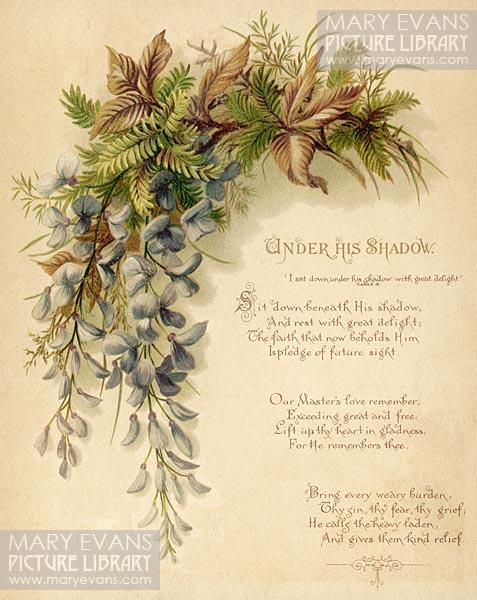 MARY EVANS
PICTURE LIBRARY
www.maryevans.com
UNDER HIS SHADOW.
"I sat down under his shadow with great delight."
Sit down beneath His shadow,
And rest with great delight;
The faith that now beholds Him
Is pledge of future sight.
Our Master's love remember,
Exceeding great and free,
Lift up thy heart in gladness,
For He remembers thee.
Bring every weary burden,
Thy sin, thy fear, thy grief;
He calls the heavy laden,
And gives them kind relief.
MARY EVANS
PICTURE LIBRARY
www.maryevans.com
MARY EVANS
PICTURE LIBRARY
www.maryevans.com